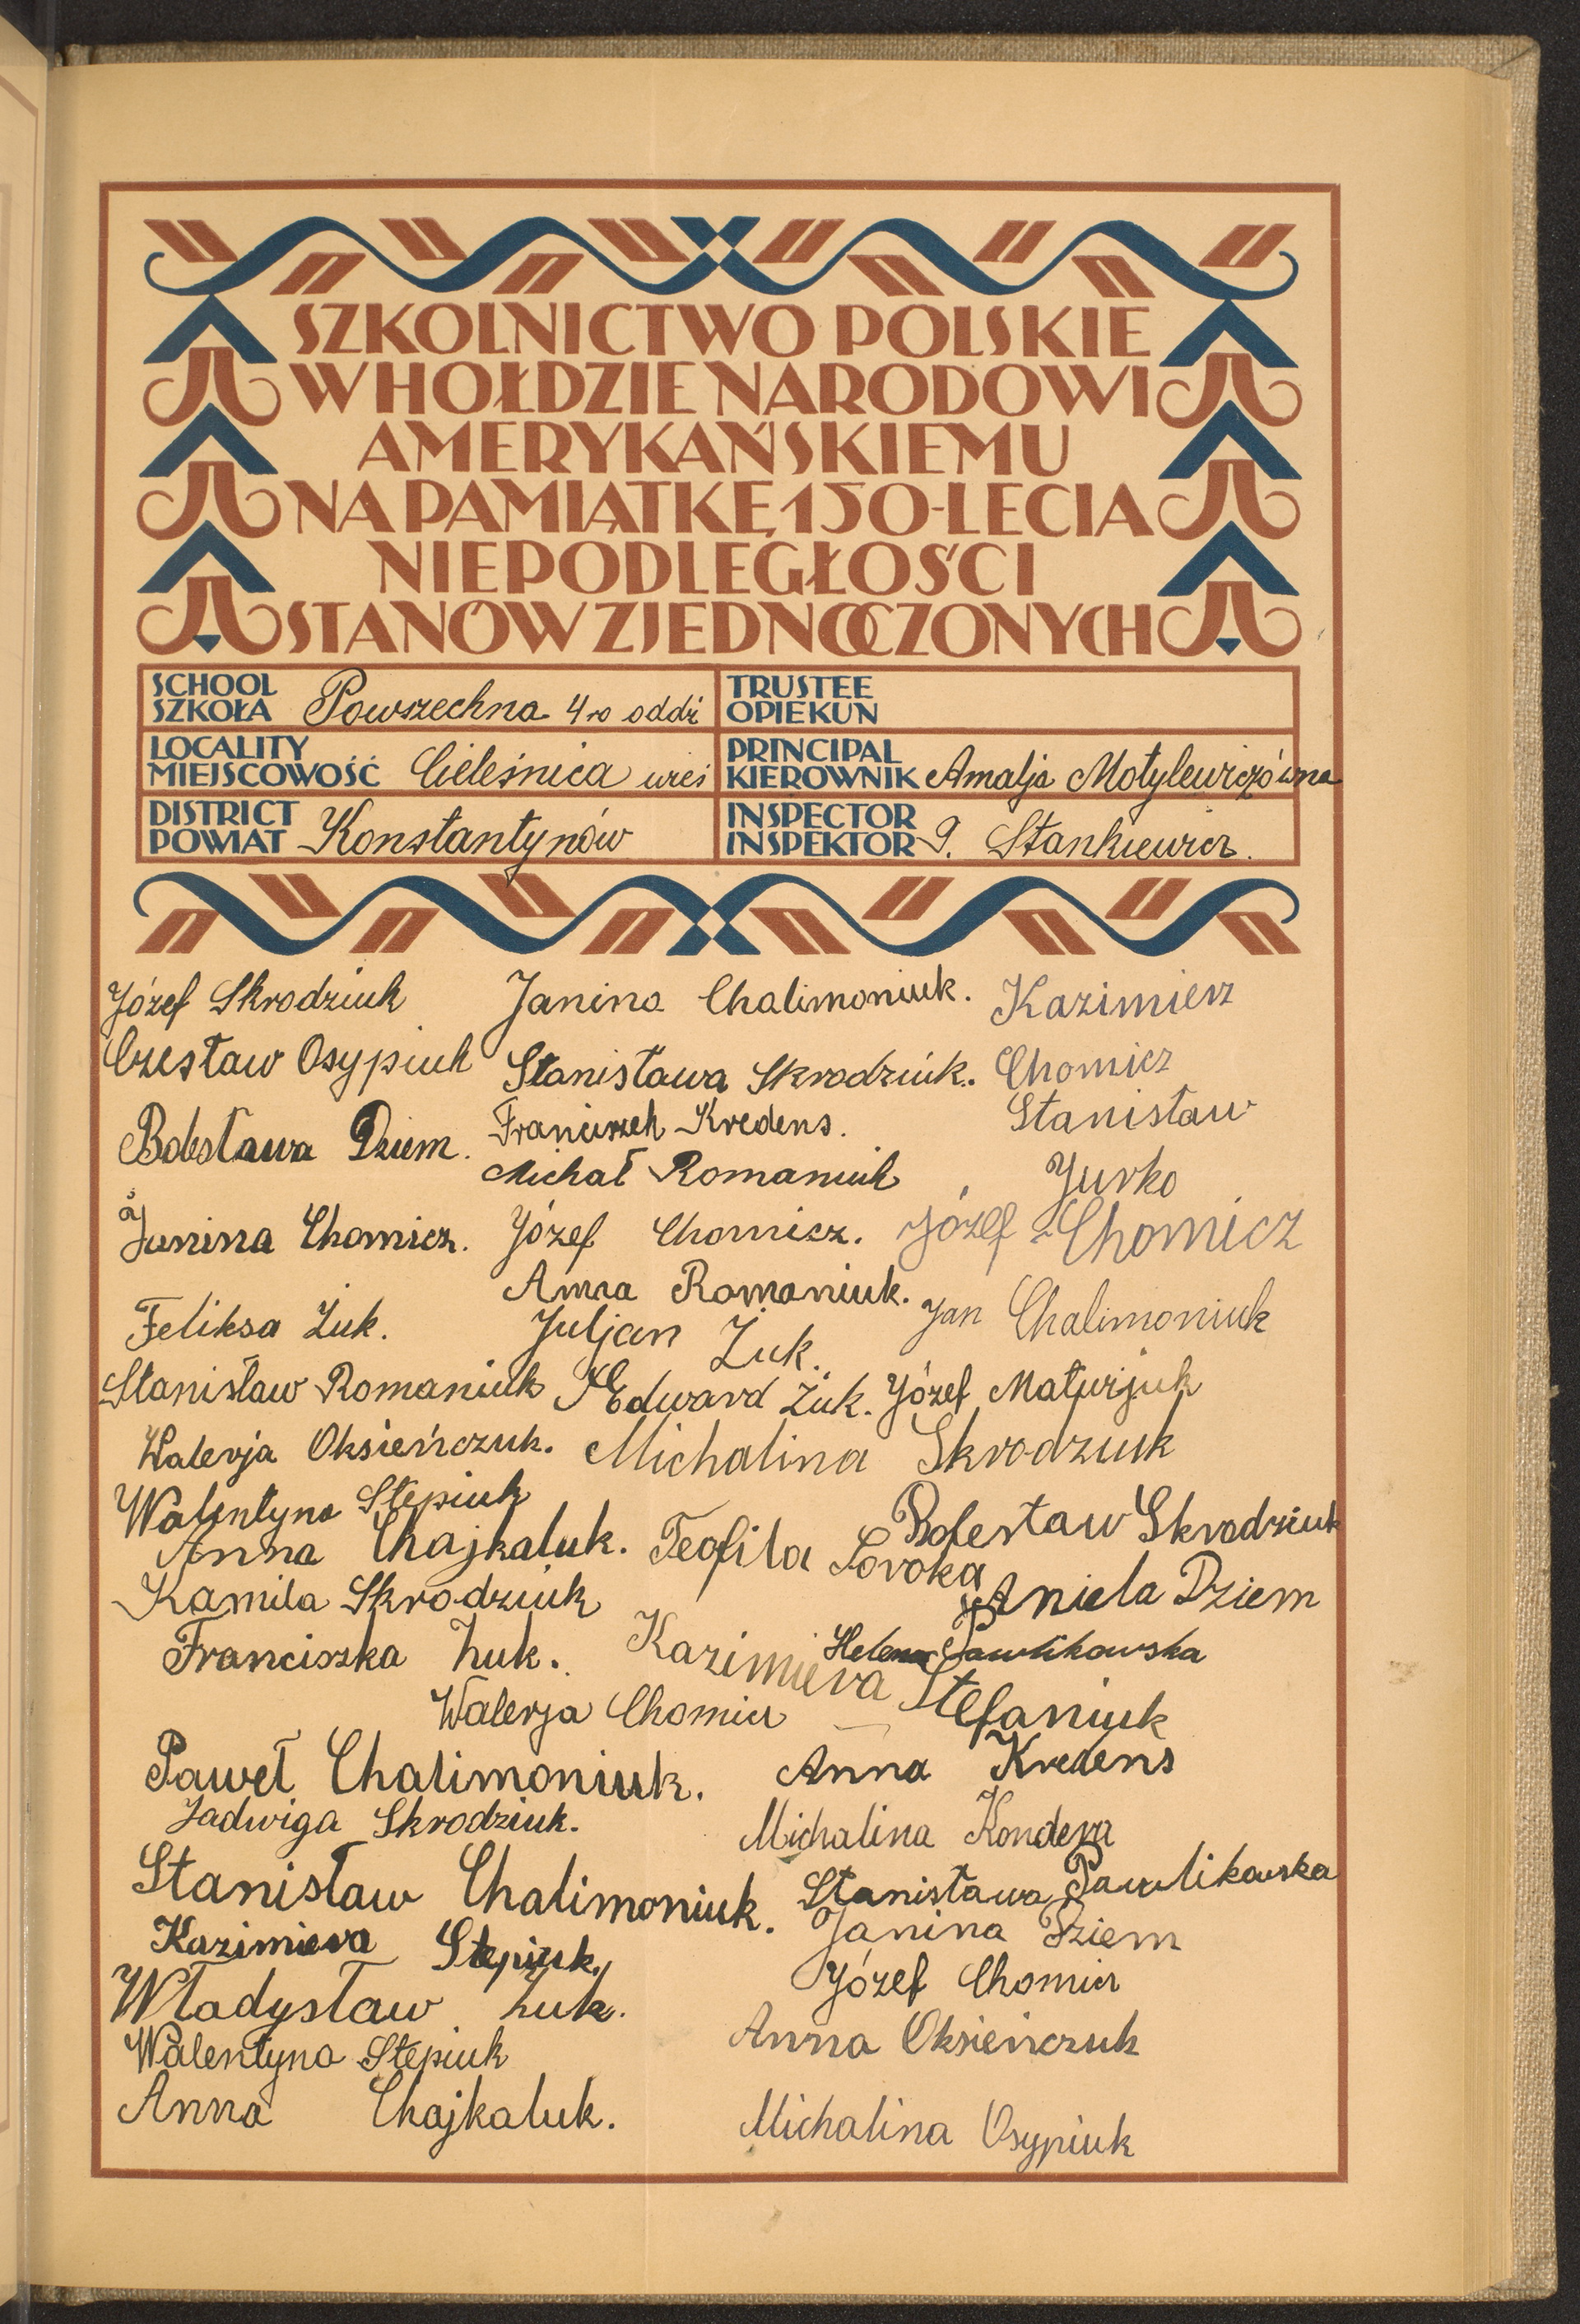 SZKOLNICTWO POLSKIE
W HOŁDZIE NARODOWI
AMERYKAŃSKIEMU
NA PAMIĄTKĘ 150-LECIA
NIEPODLEGŁOŚCI
STANÓW ZJEDNOCZONYCH
SCHOOL
SZKOŁA Powszechna 4ro oddz
TRUSTEE
OPIEKUN
LOCALITY
MIEJSCOWOŚĆ Cieleśnica wieś
PRINCIPAL
KIEROWNIK Amalja Motylewiczówna
DISTRICT
POWIAT Konstantynów
INSPECTOR
INSPEKTOR J. Stankiewicz.
Józef Skrodziuk
Czesław Osypiuk
Bolesława Dziem.
Janina Chomicz.
Feliksa Żuk.
Stanisław Romaniuk
Walerja Oksieńczuk.
Walentyna Stepiuk
Anna Chajkaluk.
Kamila Skrodziuk
Franciszka Żuk.
Walerja Chomicz
Paweł Chalimoniuk.
Jadwiga Skrodziuk.
Stanisław Chalimoniuk.
Kazimiera Stepiuk.
Władysław Żuk.
Walentyna Stepiuk
Anna Chajkaluk.
Janina Chalimoniuk.
Stanisława Skrodziuk.
Franciszek Kredens.
Michał Romaniuk
Józef Chomicz.
Anna Romaniuk.
Juljan Żuk.
Edward Żuk.
Michalina Skrodziuk
Teofila Soroka
Kazimiera Stefaniuk
Kazimierz
Chomicz
Stanisław
Jurko
Józef Chomicz
Jan Chalimoniuk
Józef Matwijuk
Bolesław Skrodziuk
Aniela Dziem
Helena Pawlikowska
Anna Kredens
Michalina Kondera
Stanisława Pawlikowska
Janina Dziem
Józef Chomicz
Anna Oksieńczuk
Michalina Osypiuk